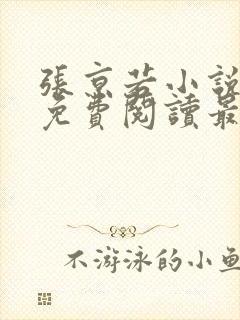 張京若小說
免費閱讀最
不游泳的小魚